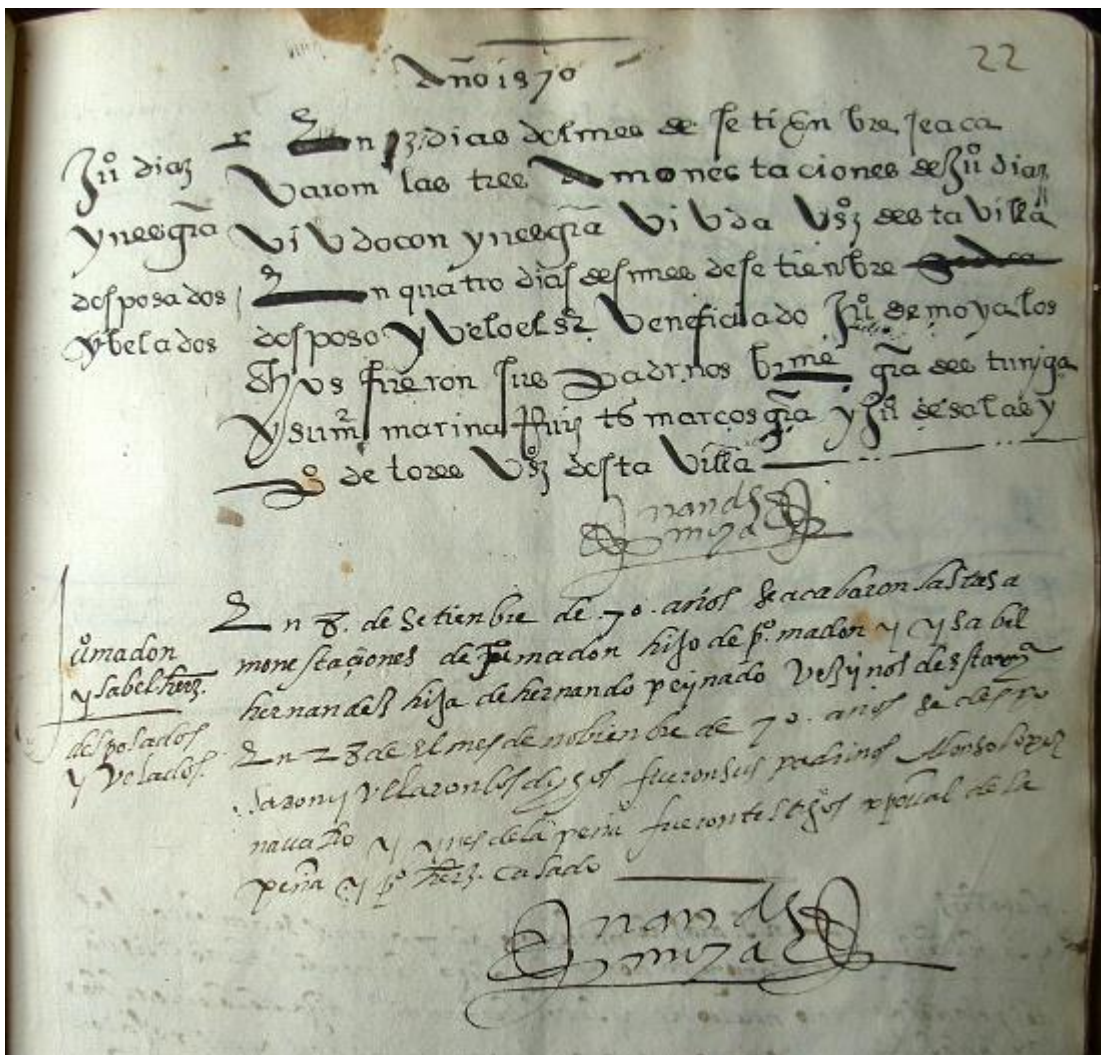 22
Año 1570
Juº diaz
ynes grã
desposados
y belados
En 3 dias del mes de setienbre se aca
varom las tres Amonestaciones de Juº diaz
Viudo con ynes grã Viuda Vºs desta villa
En quatro dias del mes de setienbre
desposo y Velo el sr Veneficiado Juº de moya los
dhos fueron sus Padrinos bme grã de çuniga
y su mr marina Ruiz tºs marcos grã y Juº de salas y
Pº de tores Vºs desta Villa
juº madon
ysabel herz.
desposados
y velados.
En 8. de setienbre de .70. años se acabaron las tres a
monestaçiones de juº madon hijo de pº. madon y ysabel
hernandes hija de hernando peynado vesynos desta vª
En 28 del mes de nobienbre de 70. años se despo
saron y velaron los dhos fueron sus padrinos Alonso lopez
nauarro y ynes de la peña fueron testigos xpoual de la
peña y pº herz. casado